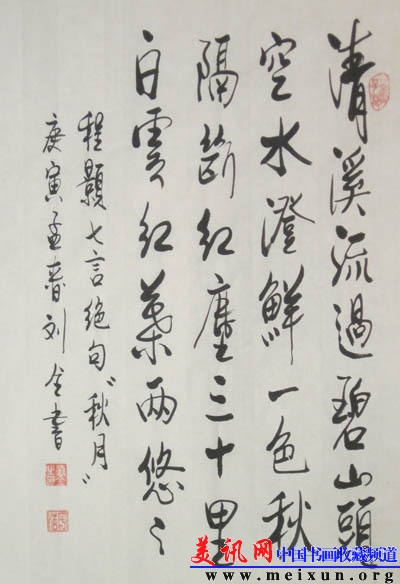 清溪流過碧山頭
空水澄鮮一色秋
隔斷红塵三十里
白雲红葉兩悠々
程顥七言绝句“秋月”
庚寅孟春刘全書
美讯网 中国书画收藏频道
www.meixun.org